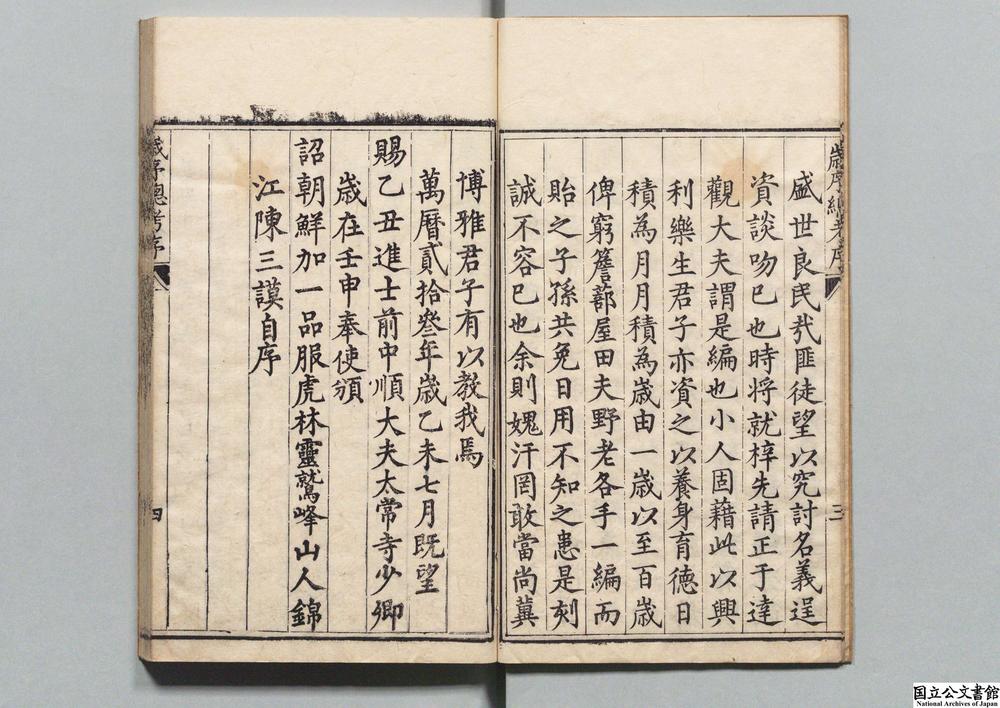 歲序總考序
三
盛世良民㢤匪徒望以究討名義逞
資談吻已也時将就梓先請正于達
觀大夫謂是編也小人固藉此以興
利樂生君子亦資之以養身育德日
積為月月積為歲由一歲以至百歲
俾窮簷蔀屋田夫野老各手一編而
貽之子孫共免日用不知之患是刻
誠不容已也余則媿汗罔敢當尚冀
博雅君子有以教我焉
萬曆貳拾叄年歲乙未七月既望
賜乙丑進士前中順大夫太常寺少卿
歲在壬申奉使頒
詔朝鮮加一品服虎林靈鷲峰山人錦
江陳三謨自序
歲序總考序
四
国立公文書館
National Archives of Japan